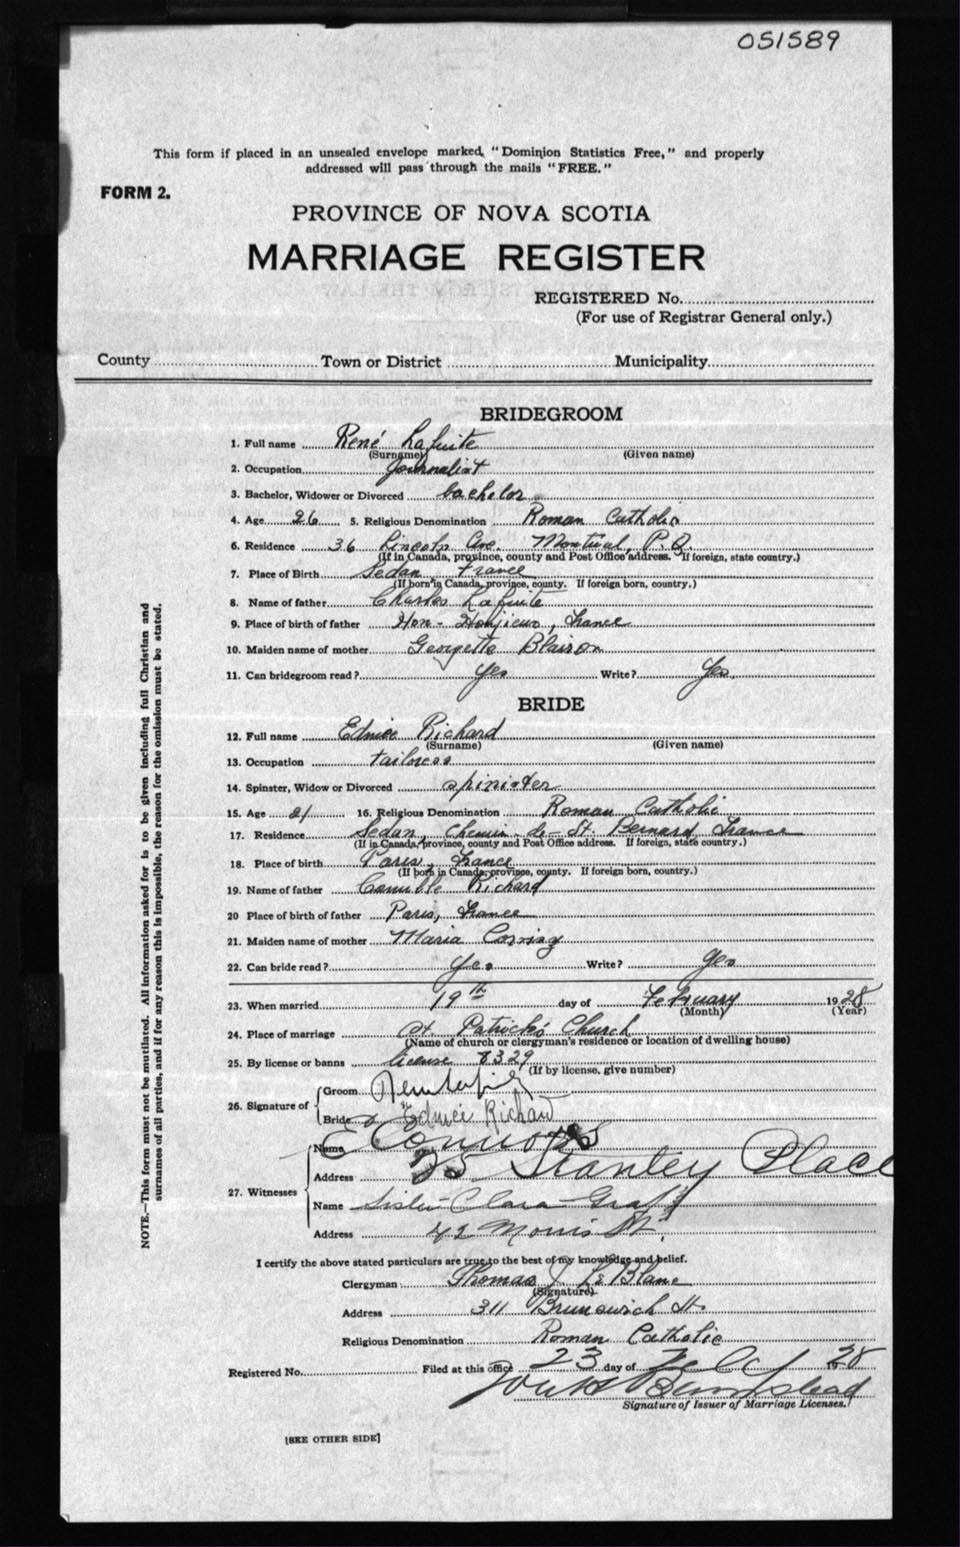 051589
This form if placed in an unsealed envelope marked, "Dominion Statistics Free," and properly
addressed will pass through the mails "FREE."
FORM 2.
PROVINCE OF NOVA SCOTIA
MARRIAGE REGISTER
REGISTERED No.
(For use of Registrar General only.)
County Town or District Municipality
BRIDEGROOM
1. Full name René Lafuite
(Surname) (Given name)
2. Occupation Journalist
3. Bachelor, Widower or Divorced bachelor
4. Age 26 5. Religious Denomination Roman Catholic
6. Residence 36 Lincoln Ave. Montreal, P.Q.
(If in Canada, province, county and Post Office address. If foreign, state country.)
7. Place of Birth Sedan France
(If born in Canada, province, county. If foreign born, country.)
8. Name of father Charles Lafuite
9. Place of birth of father France
10. Maiden name of mother Georgette
11. Can bridegroom read? Yes Write? Yes.
BRIDE
12. Full name Richard
(Surname) (Given name)
13. Occupation tailoress
14. Spinster, Widow or Divorced spinister
15. Age 21 16. Religious Denomination Roman Catholic
17. Residence Sedan, Chemin-de-St. Bernard, France
(If in Canada, province, county and Post Office address. If foreign, state country.)
18. Place of birth Paris, France
(If born in Canada, province, county. If foreign born, country.)
19. Name of father Richard
20 Place of birth of father Paris, France
21. Maiden name of mother Maria
22. Can bride read? Yes Write? Yes
23. When married 19th day of February 1928
(Month) (Year)
24. Place of marriage St. Patrick's Church
(Name of church or clergyman's residence or location of dwelling house)
25. By license or banns license 8329
(If by license, give number)
26. Signature of
Groom
Bride Richard
27. Witnesses
Name E Connors
Address 25 Stanley Place
Name Sister Clara
Address 42 Morris St.
I certify the above stated particulars are true to the best of my knowledge and belief.
Clergyman Thomas J. LeBlanc
(Signature)
Address 311 Brunswick St.
Religious Denomination Roman Catholic
Registered No. Filed at this office 23 day of Feb 1928
Signature of Issuer of Marriage Licenses.
[SEE OTHER SIDE]
NOTE.—This form must not be mutilated. All information asked for is to be given including full Christian and
surnames of all parties, and if for any reason this is impossible, the reason for the omission must be stated.